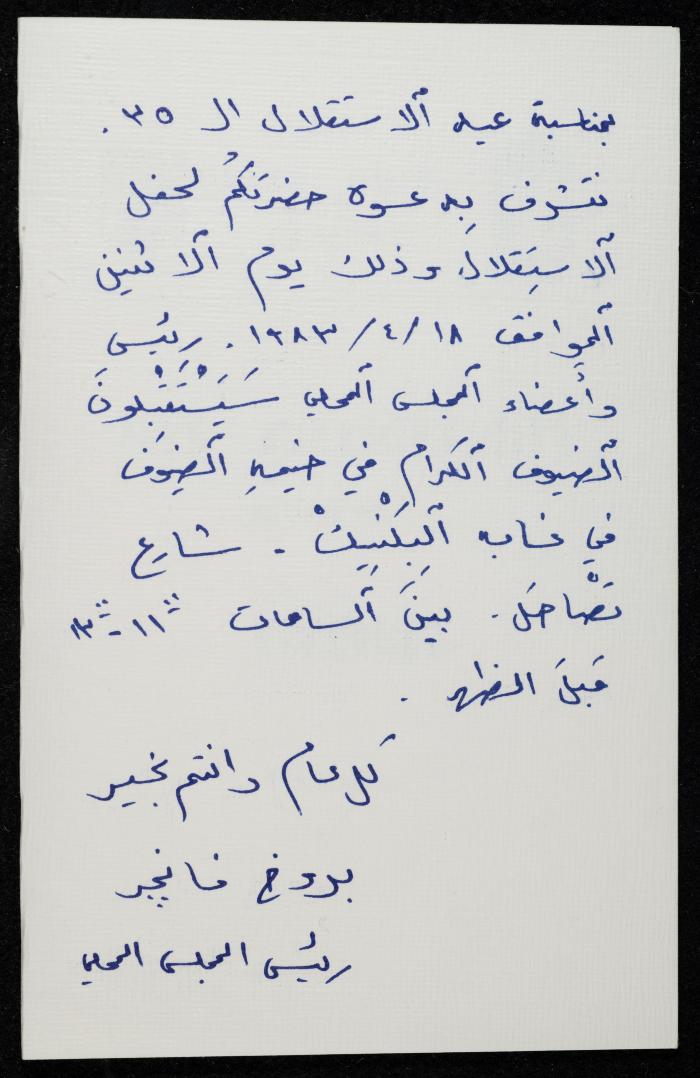 بمناسبة عيد ٱلاستقلال الـ ٣٥.
نتشرف بِدعوة حضرتكُم لحفل
ٱلاستِقلال وذلك يوم ٱلاثنين
ٱلموافق ١٩٨٣/٤/١٨. رئيس
وأعضاء ٱلمجلس ٱلمحلي سَيَسْتَقْبِلُونَ
ٱلضيوف ٱلكرام في خيمهِ ٱلضِيوف
في غابه ٱلبِكْنِيكْ - شارع
تصْاحل. بينَ ٱلساعات ١١:٠٠-١٣:٠٠
قبلَ الظهر.
كل عام وانتم بخير
بروخ فانچر
رئيس المجلس المحلي